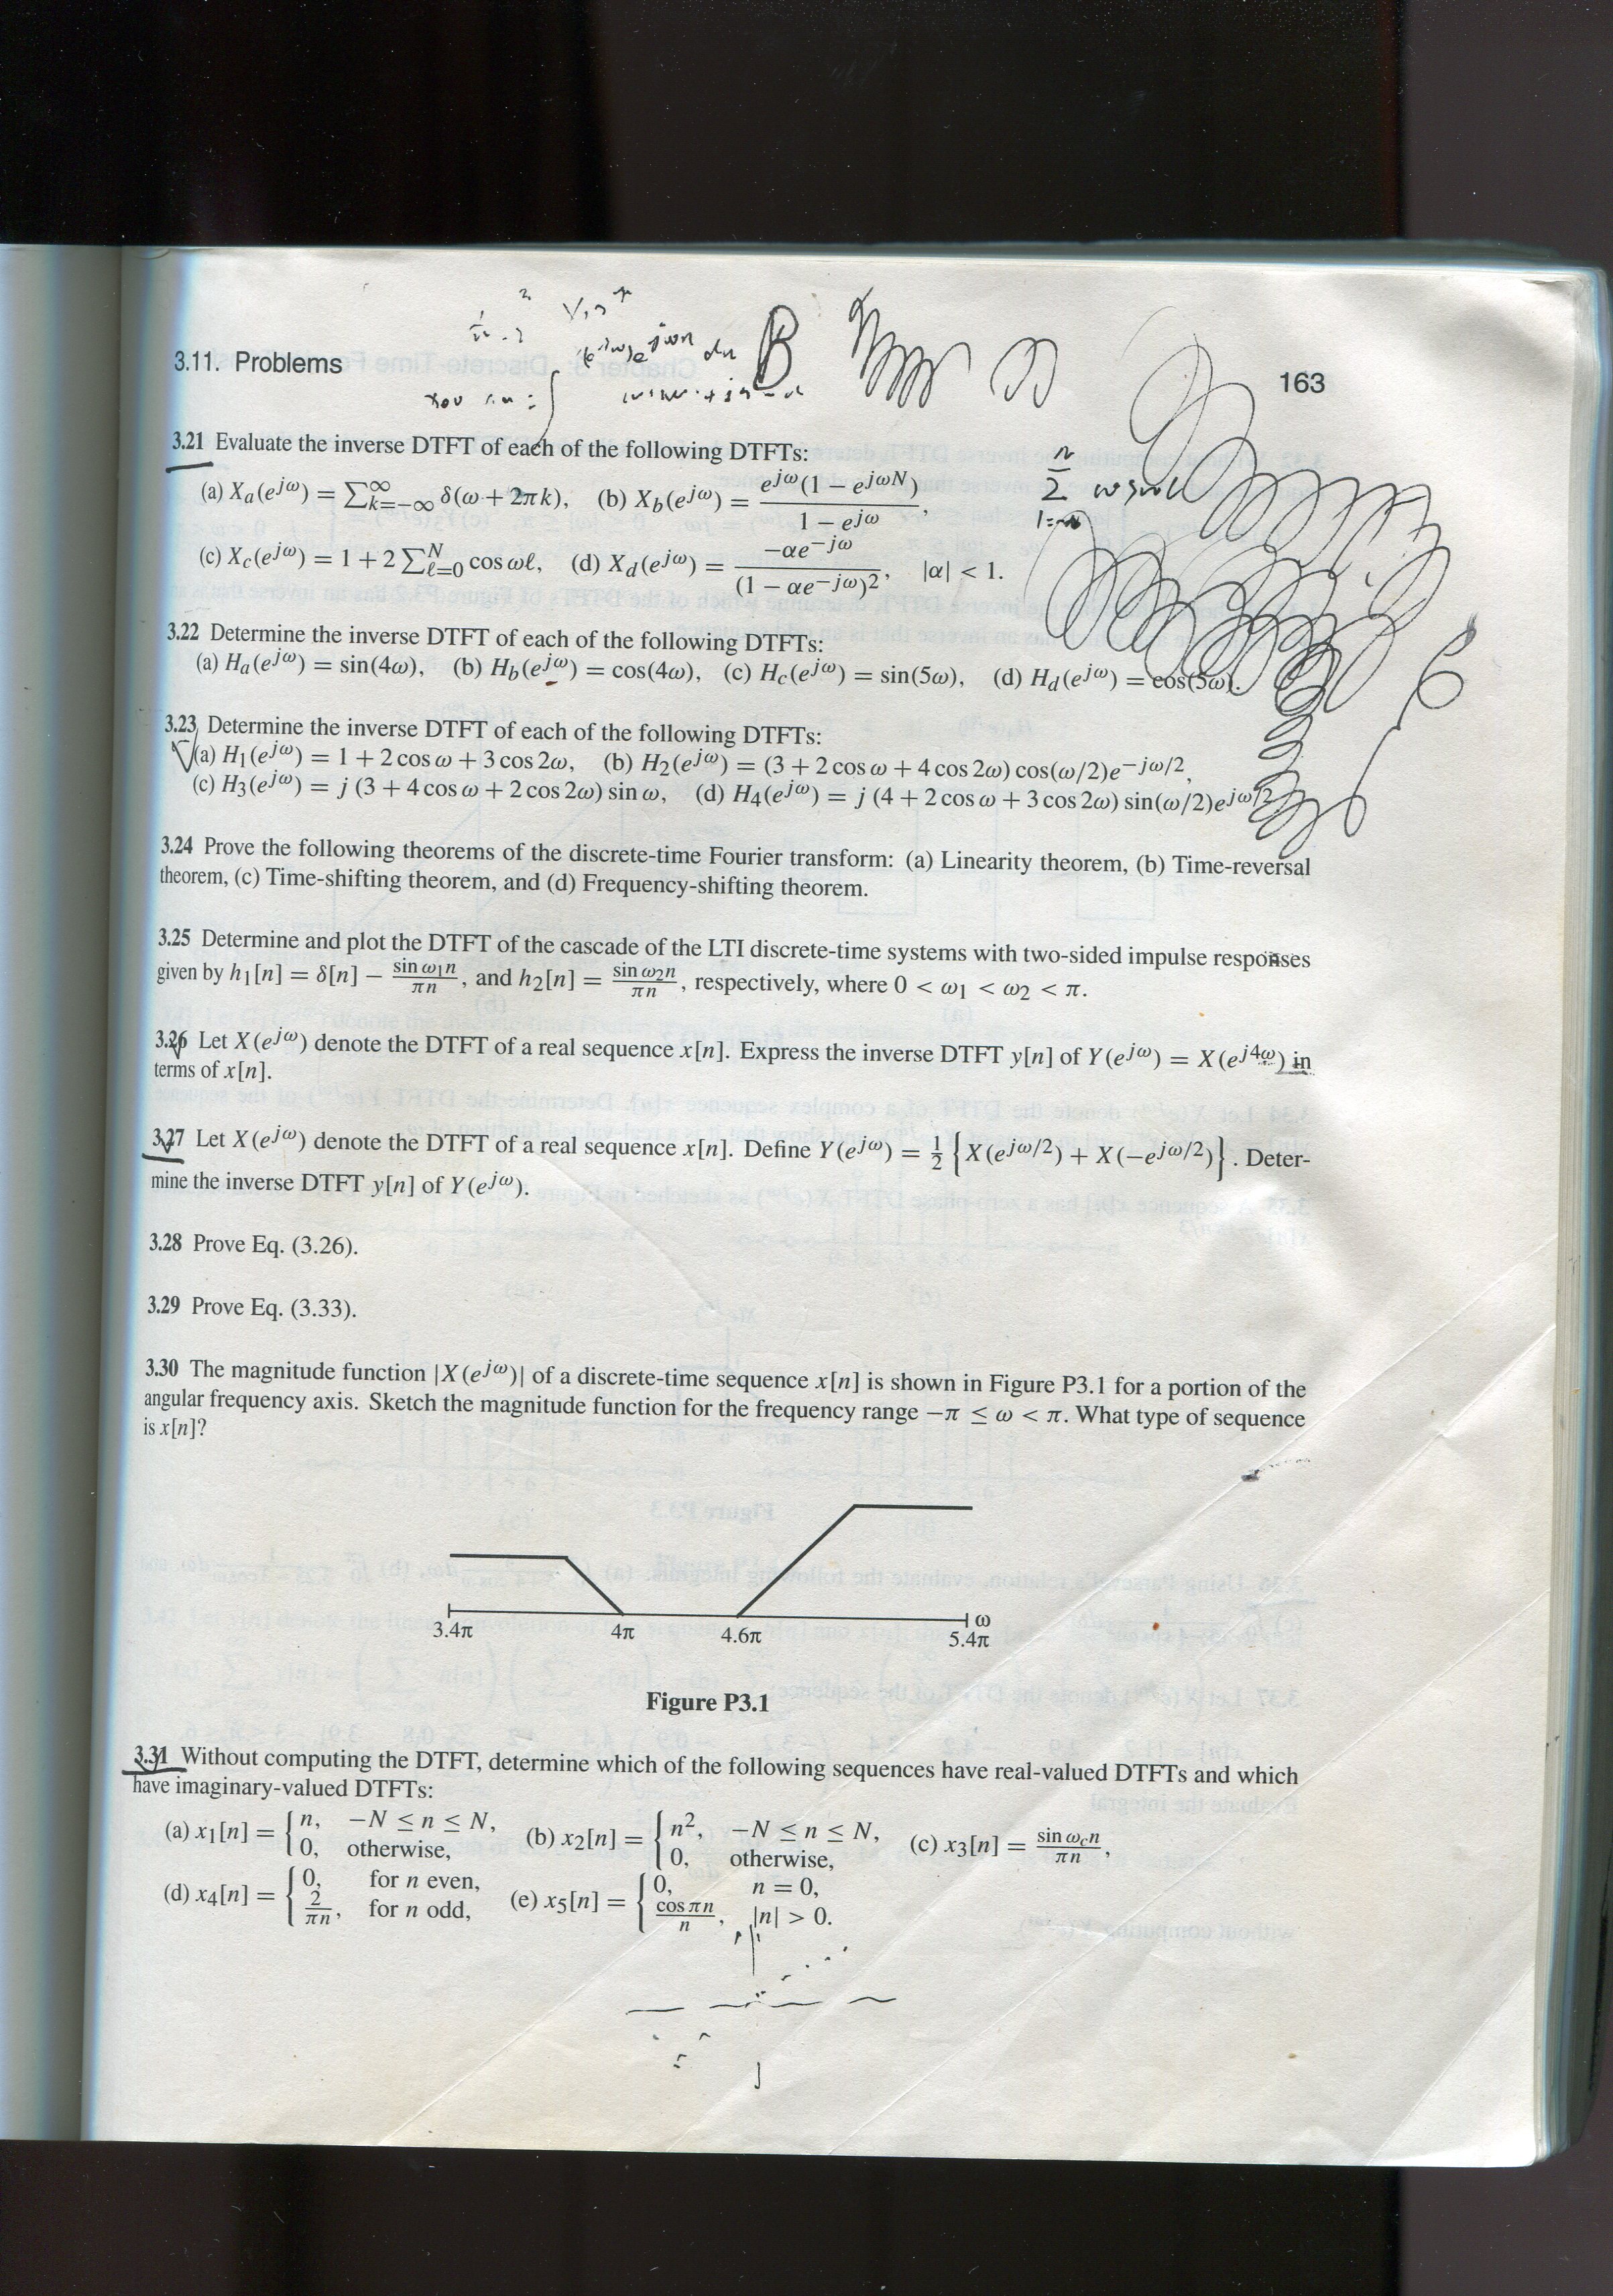 3.11. Problems
163
3.21 Evaluate the inverse DTFT of each of the following DTFTs:
(a) Xₐ(e^{jω}) = ∑_{k=−∞}^{∞} δ(ω + 2πk), (b) X_b(e^{jω}) = \frac{e^{jω}(1 − e^{jωN})}{1 − e^{jω}},
(c) X_c(e^{jω}) = 1 + 2 ∑_{ℓ=0}^{N} cos ωℓ, (d) X_d(e^{jω}) = \frac{−αe^{−jω}}{(1 − αe^{−jω})²}, |α| < 1.
3.22 Determine the inverse DTFT of each of the following DTFTs:
(a) Hₐ(e^{jω}) = sin(4ω), (b) H_b(e^{jω}) = cos(4ω), (c) H_c(e^{jω}) = sin(5ω), (d) H_d(e^{jω}) = cos(5ω).
3.23 Determine the inverse DTFT of each of the following DTFTs:
(a) H₁(e^{jω}) = 1 + 2 cos ω + 3 cos 2ω, (b) H₂(e^{jω}) = (3 + 2 cos ω + 4 cos 2ω) cos(ω/2)e^{−jω/2},
(c) H₃(e^{jω}) = j (3 + 4 cos ω + 2 cos 2ω) sin ω, (d) H₄(e^{jω}) = j (4 + 2 cos ω + 3 cos 2ω) sin(ω/2)e^{jω/2}.
3.24 Prove the following theorems of the discrete-time Fourier transform: (a) Linearity theorem, (b) Time-reversal
theorem, (c) Time-shifting theorem, and (d) Frequency-shifting theorem.
3.25 Determine and plot the DTFT of the cascade of the LTI discrete-time systems with two-sided impulse responses
given by h₁[n] = δ[n] − \frac{sin ω₁n}{πn}, and h₂[n] = \frac{sin ω₂n}{πn}, respectively, where 0 < ω₁ < ω₂ < π.
3.26 Let X(e^{jω}) denote the DTFT of a real sequence x[n]. Express the inverse DTFT y[n] of Y(e^{jω}) = X(e^{j4ω}) in
terms of x[n].
3.27 Let X(e^{jω}) denote the DTFT of a real sequence x[n]. Define Y(e^{jω}) = ½ {X(e^{jω/2}) + X(−e^{jω/2})}. Deter-
mine the inverse DTFT y[n] of Y(e^{jω}).
3.28 Prove Eq. (3.26).
3.29 Prove Eq. (3.33).
3.30 The magnitude function |X(e^{jω})| of a discrete-time sequence x[n] is shown in Figure P3.1 for a portion of the
angular frequency axis. Sketch the magnitude function for the frequency range −π ≤ ω < π. What type of sequence
is x[n]?
ω
3.4π 4π 4.6π 5.4π
Figure P3.1
3.31 Without computing the DTFT, determine which of the following sequences have real-valued DTFTs and which
have imaginary-valued DTFTs:
(a) x₁[n] = { n, −N ≤ n ≤ N, 0, otherwise, (b) x₂[n] = { n², −N ≤ n ≤ N, 0, otherwise, (c) x₃[n] = \frac{sin ω_c n}{πn},
(d) x₄[n] = { 0, for n even, \frac{2}{πn}, for n odd, (e) x₅[n] = { 0, n = 0, \frac{cos πn}{n}, |n| > 0.